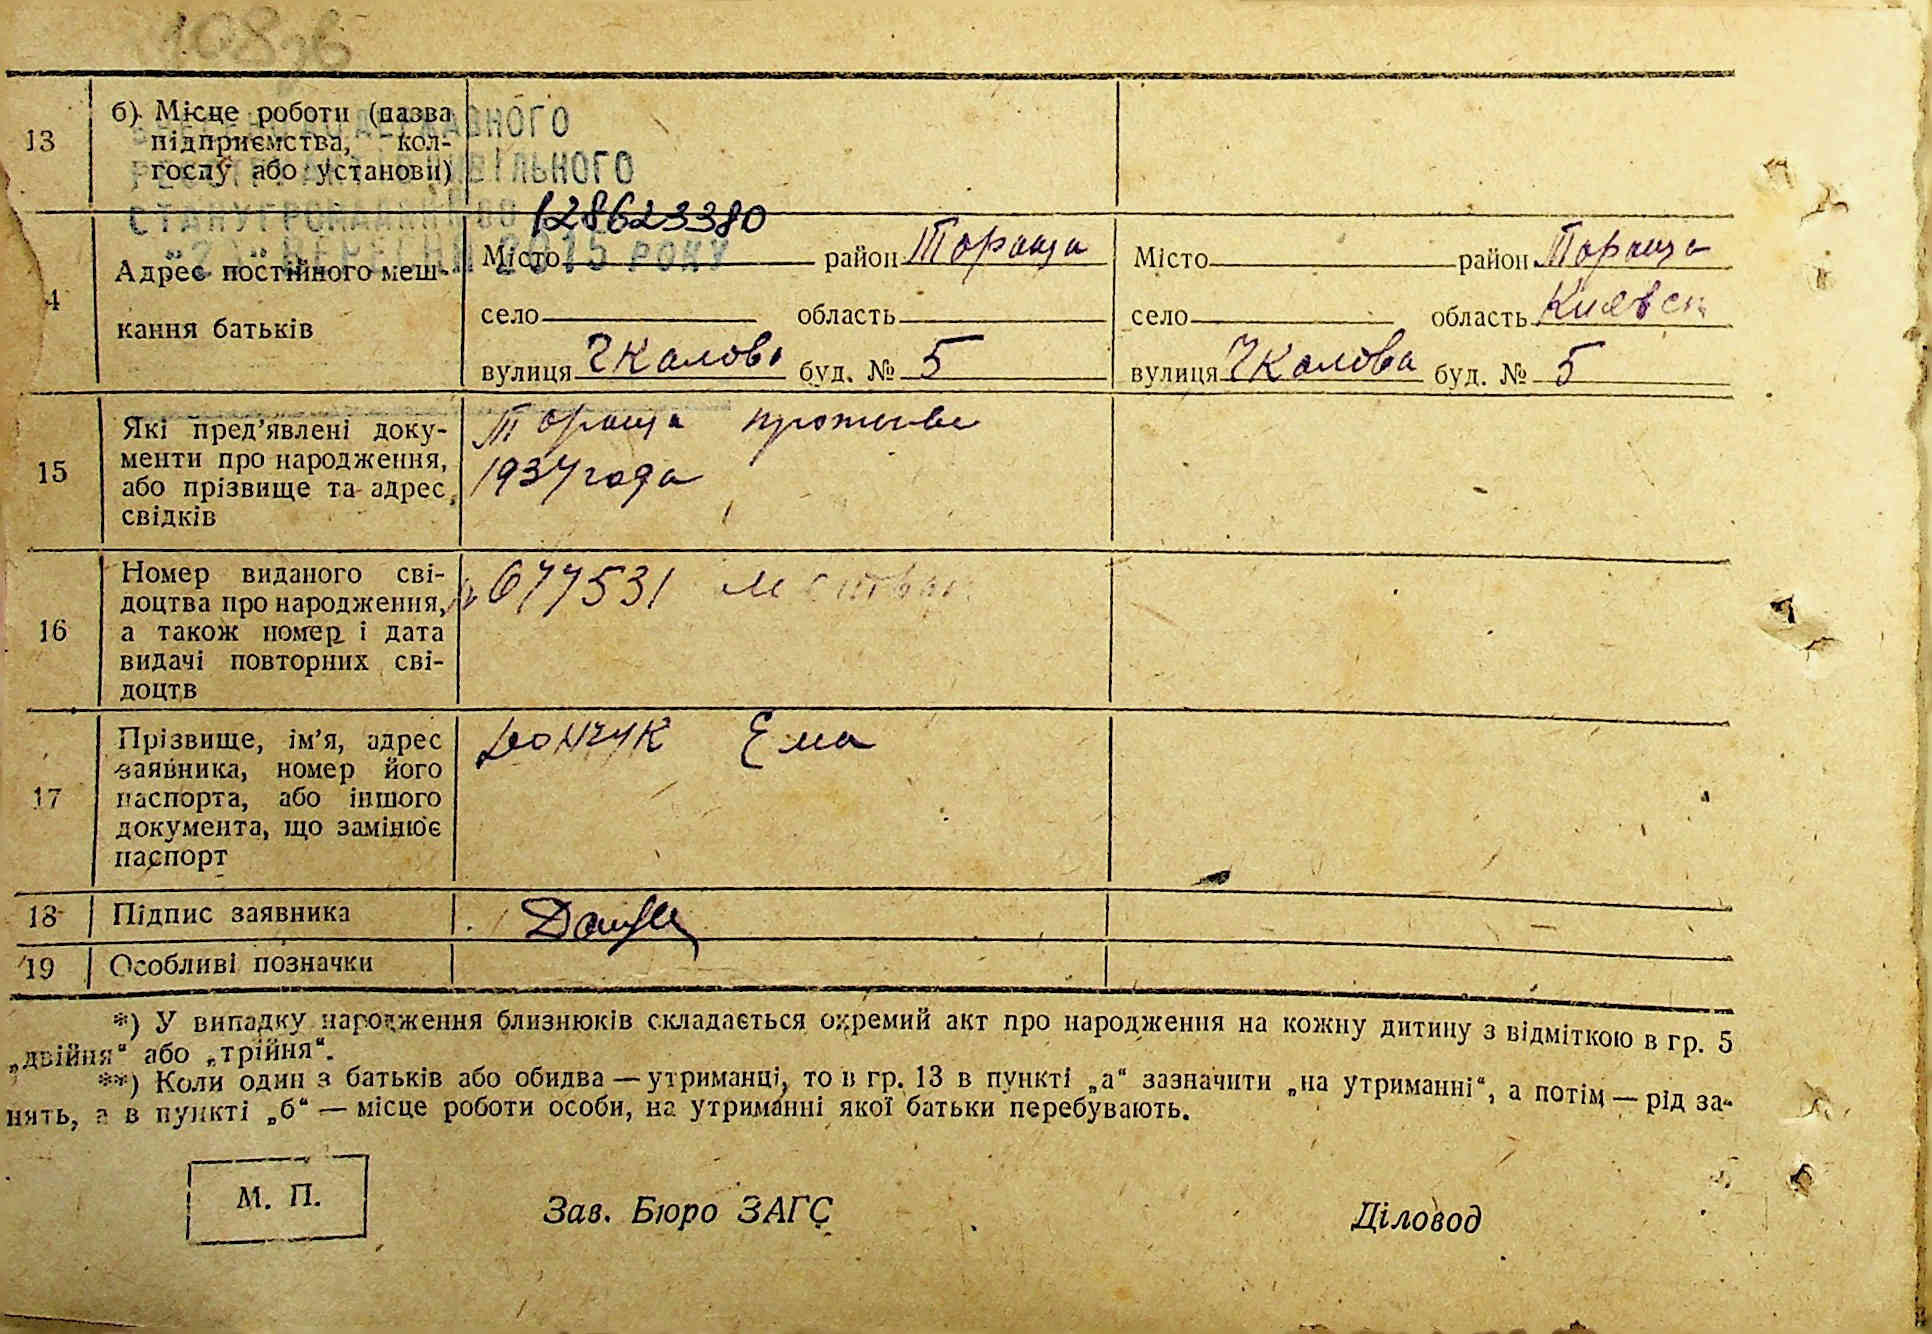 13
б) Місце роботи (назва
підприємства, кол-
госпу або установи)
НОГО
ВІЛЬНОГО
СТАНУ ГРОМАДЯН
ВЕРЕСНЯ 2015 РОКУ
128623380
4
Адрес постійного меш-
кання батьків
Місто район Тараща
село область
вулиця Чкалова буд. № 5
Місто район Тараща
село область Киевск
вулиця Чкалова буд. № 5
15
Які пред’явлені доку-
менти про народження,
або прізвище та адрес
свідків
Тараща
1937 года
16
Номер виданого сві-
доцтва про народження,
а також номер і дата
видачі повторних сві-
доцтв
677531
17
Прізвище, ім’я, адрес
заявника, номер його
паспорта, або іншого
документа, що замінює
паспорт
Дончук Ема
18
Підпис заявника
19
Особливі позначки
*) У випадку народження близнюків складається окремий акт про народження на кожну дитину з відміткою в гр. 5
„двійня“ або „трійня“.
**) Коли один з батьків або обидва — утриманці, то в гр. 13 в пункті „а“ зазначити „на утриманні“, а потім — рід за-
нять, а в пункті „б“ — місце роботи особи, на утриманні якої батьки перебувають.
М. П.
Зав. Бюро ЗАГС
Діловод